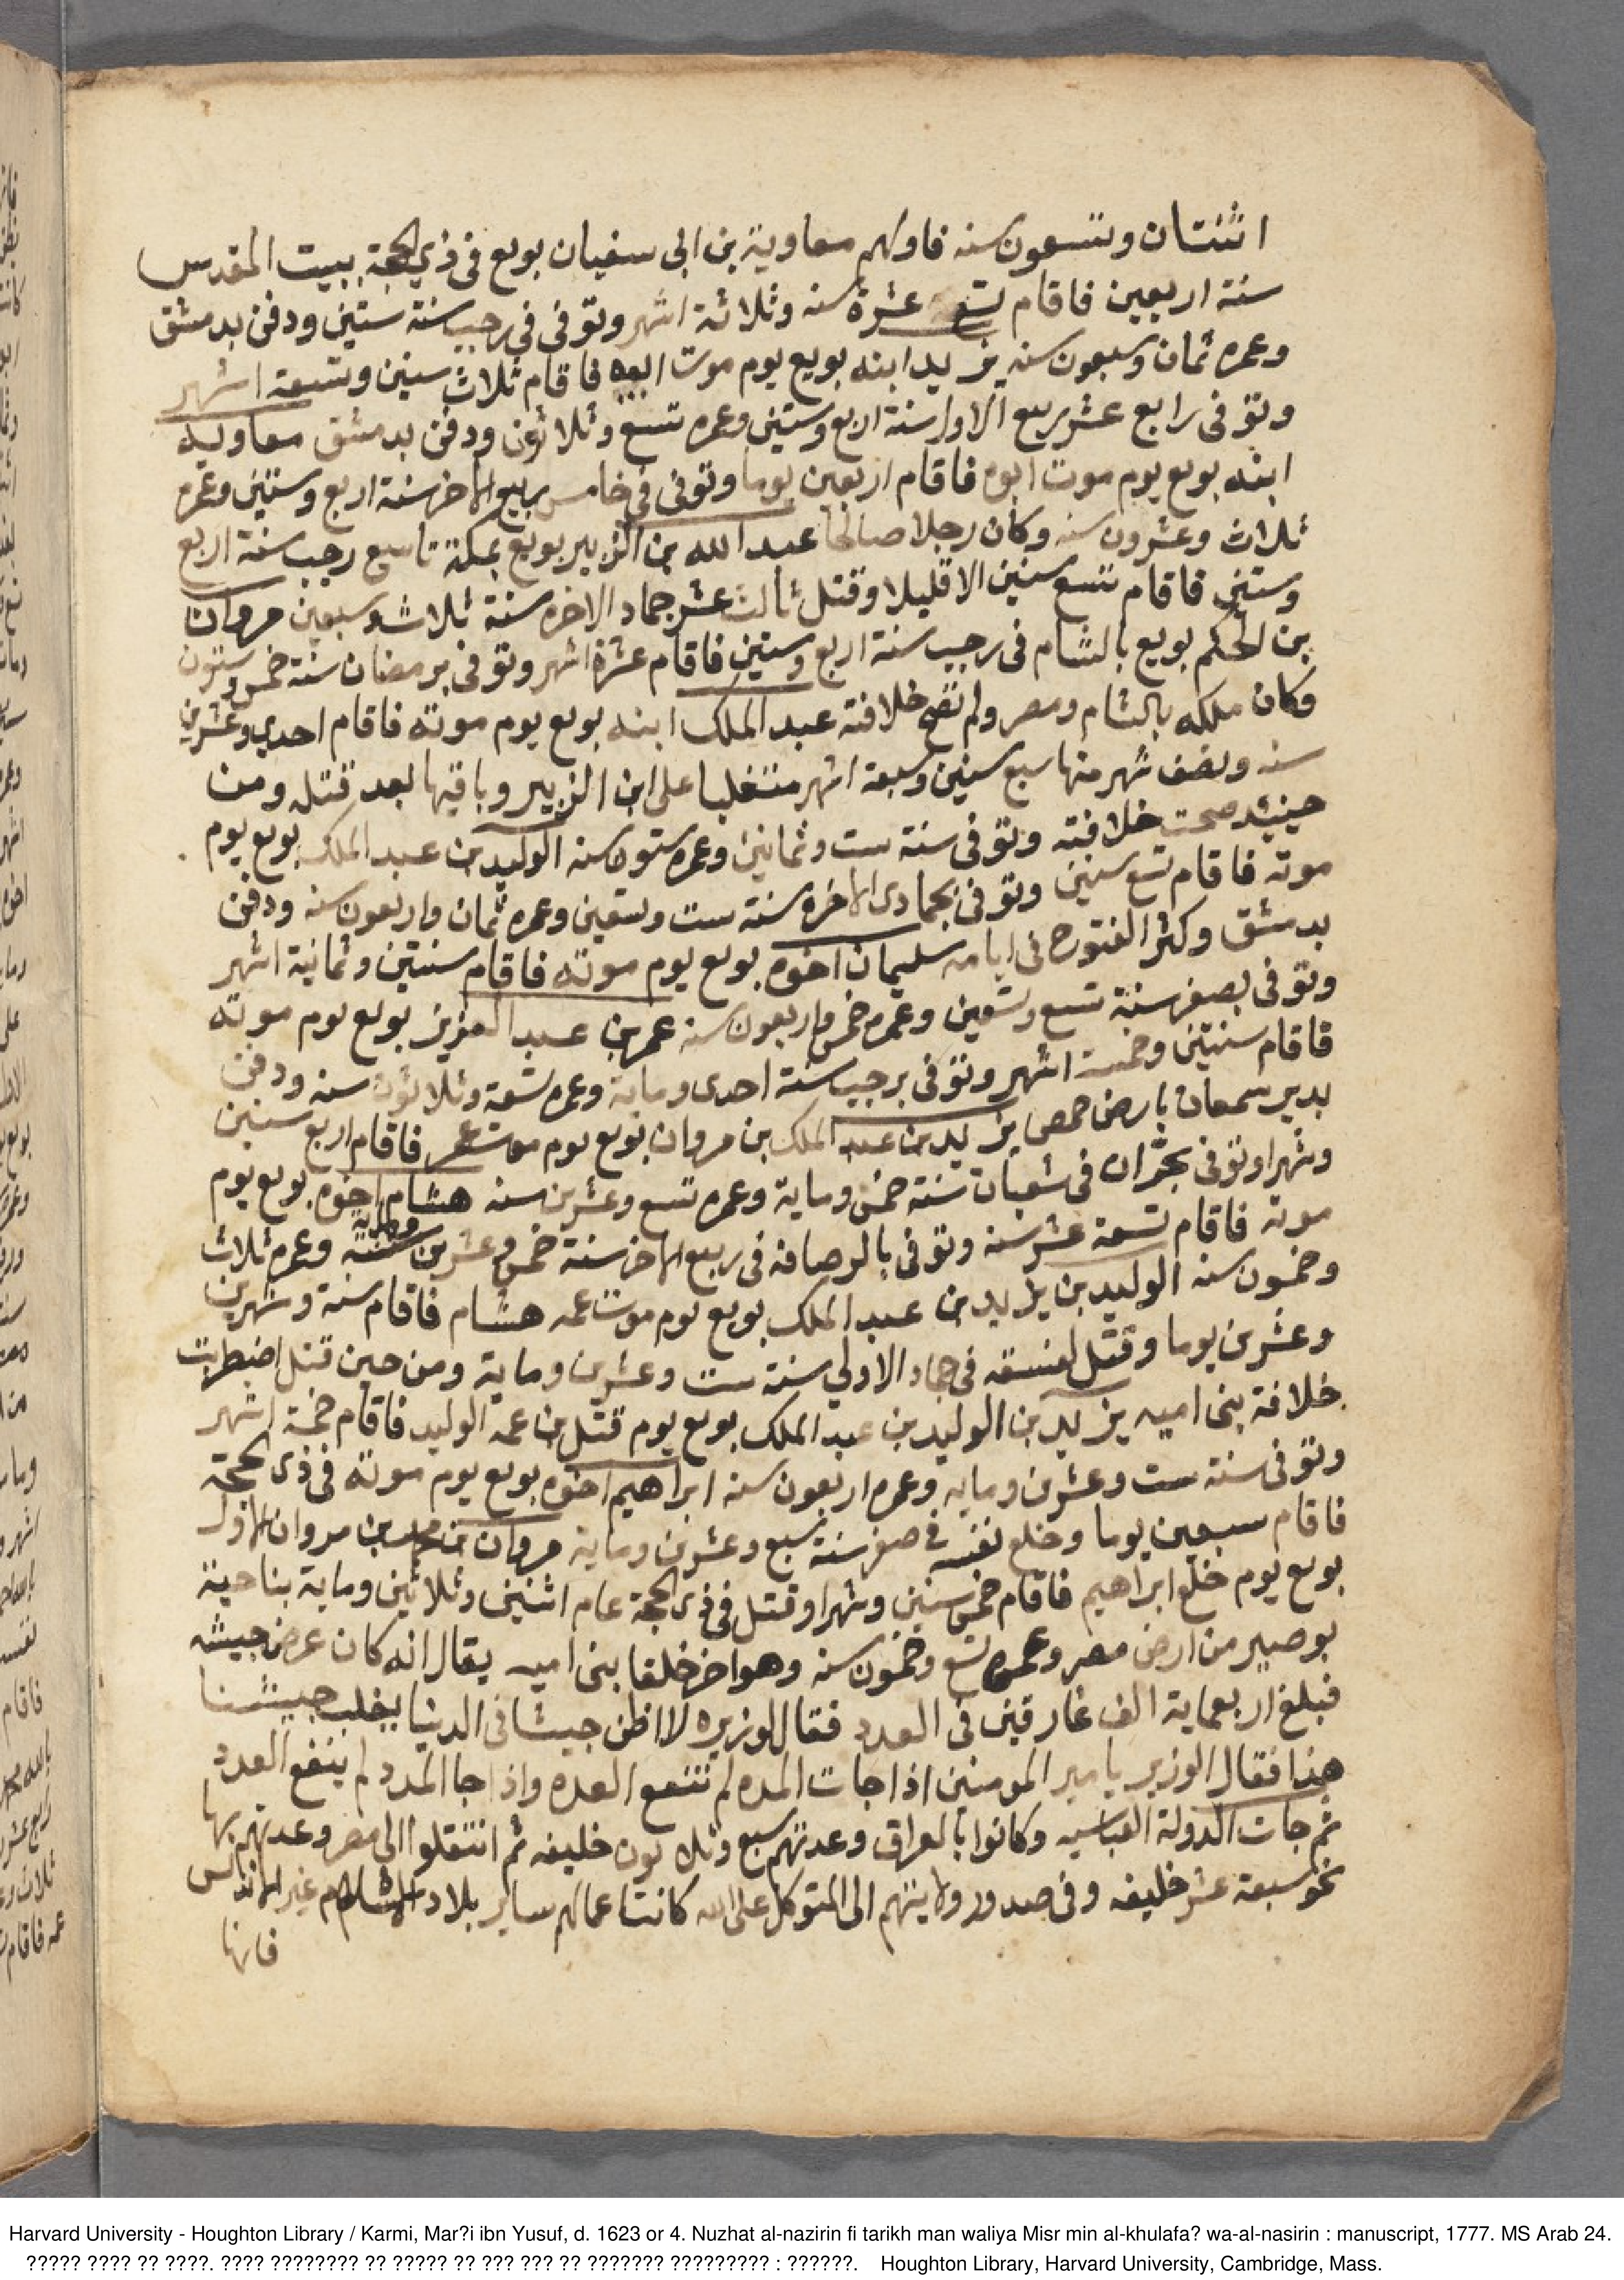 اثنتان وتسعون سنه فاولهم معاوية بن ابى سفيان بويع فى ذي الحجة ببيت المقدس
سنة اربعين فاقام تسعة عشرة سنه وثلاثة اشهر وتوفى في رجب سنة ستين ودفن بدمشق
وعمره ثمان وسبعون سنه يزيد ابنه بويع يوم موت ابيه فاقام ثلاث سنين وتسعة اشهر
وتوفى رابع عشر ربيع الاول سنة اربع وستين وعمره تسع وثلاثون ودفن بدمشق معاوية
ابنه بويع يوم موت ابوه فاقام اربعين يوما وتوفى في خامس ربيع الاخر سنة اربع وستين وعمره
ثلاث وعشرون سنه وكان رجلا صالحا عبد الله بن الزبير بويع بمكة تاسع رجب سنة اربع
وستين فاقام تسع سنين الا قليلا وقتل ثالث عشر جماد الاخره سنة ثلاث وسبعين مروان
بن الحكم بويع بالشام فى رجب سنة اربع وستين فاقام عشرة اشهر وتوفى برمضان سنة خمس وستون
وكان ملكه بالشام ومصر ولم تصح خلافته عبد الملك ابنه بويع يوم موته فاقام احدي وعشرين
سنه ونصف شهر منها سبع سنين وسبعة اشهر متغلبا على ابن الزبير وباقيها بعد قتله ومن
حينيد صحت خلافته وتوفى سنة ست وثمانين وعمره ستون سنه الوليد بن عبد الملك بويع يوم
موته فاقام تسع سنين وتوفى بجمادى الاخره سنة ست وتسعين وعمره ثمان واربعون سنه ودفن
بدمشق وكثر الفتوح فى ايامه سليمان اخوه بويع يوم موته فاقام سنتين وثمانية اشهر
وتوفى بصفر سنة تسع وتسعين وعمره خمس واربعون سنه عمر بن عبد العزيز بويع يوم موته
فاقام سنتين وخمسة اشهر وتوفى برجب سنة احدى وماية وعمره تسعة وثلاثون سنه ودفن
بدير سمعان بارض حمص يزيد بن عبد الملك بن مروان بويع يوم موت عمر فاقام اربع سنين
وشهرا وتوفى بحران فى شعبان سنة خمس وماية وعمره تسع وعشرين سنه هشام اخوه بويع يوم
موته فاقام تسعة عشر سنه وتوفى بالرصافه فى ربيع الاخر سنة خمس وعشرين وماية وعمره ثلاث
وخمسون سنه الوليد بن يزيد بن عبد الملك بويع يوم موت عمه هشام فاقام سنة وشهرين
وعشرين يوما وقتل لفسقه فى جماد الاولي سنة ست وعشرين وماية ومن حين قتل اضطربت
خلافة بنى اميه يزيد بن الوليد بن عبد الملك بويع يوم قتل بن عمه الوليد فاقام خمسة اشهر
وتوفى سنة ست وعشرين ومايه وعمره اربعون سنه ابراهيم اخوه بويع يوم موته فى ذى الحجة
فاقام سبعين يوما وخلع نفسه فى صفر سنة سبع وعشرين وماية مروان بن محمد بن مروان الاول
بويع يوم خلع ابراهيم فاقام خمس سنين وشهرا وقتل فى ذى الحجة عام اثنين وثلاثين وماية بناحية
بوصير من ارض مصر وعمره تسع وخمسون سنه وهو اخر خلفا بنى اميه يقال انه كان عرض جيشه
فبلغ اربعماية الف غارقين فى العدد فقال لوزيره لا اظن جيشا فى الدنيا يغلب جيشنا
هذا فقال الوزير يا مير المومنين اذا جات المده لم تنفع العده واذا جا المدد لم ينفع العدد
ثم جات الدولة العباسيه وكانوا بالعراق وعدتهم سبع وثلاثون خليفه ثم انتقلوا الى مصر وعدتهم بها
نحو سبعة عشر خليفه وفى صدور ولايتهم الى المتوكل على الله كانت عمالهم ساير بلاد الاسلام غير الاندلس
فانها
Harvard University - Houghton Library / Karmi, Mar?i ibn Yusuf, d. 1623 or 4. Nuzhat al-nazirin fi tarikh man waliya Misr min al-khulafa? wa-al-nasirin : manuscript, 1777. MS Arab 24.
????? ???? ?? ????. ???? ???????? ?? ????? ?? ??? ??? ?? ??????? ????????? : ??????. Houghton Library, Harvard University, Cambridge, Mass.